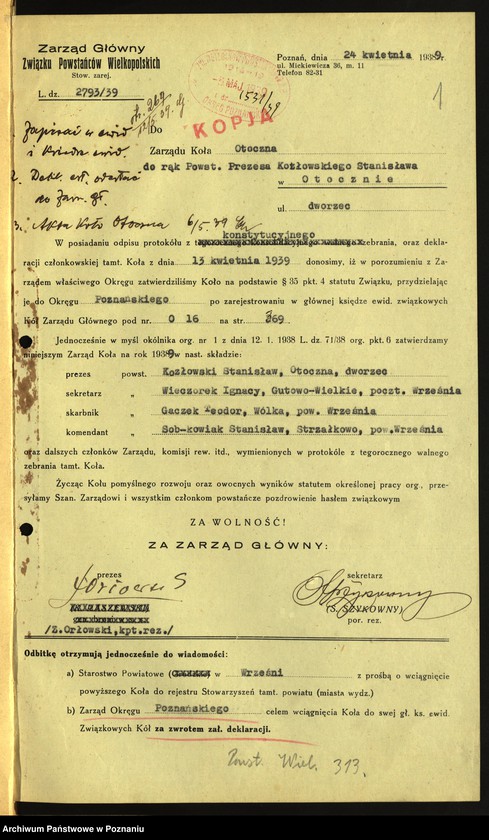 Zarząd Główny
Związku Powstańców Wielkopolskich
Stow. zarej.
L. dz. 2793/39
Poznań, dnia 24 kwietnia 1939 r.
ul. Mickiewicza 36, m. 11
Telefon 82-31
1531/39
KOPJA
1
Zapisać w ewid
i Księdze ewid.
2. Dekl. czł. odesłać
do Zarz. gł.
3. Akta Koło Otoczna 6/5.39
Do
Zarządu Koła Otoczna
do rąk Powst. Prezesa Kozłowskiego Stanisława
w Otocznie
ul. dworzec
konstytucyjnego
W posiadaniu odpisu protokółu z zebrania, oraz dekla-
racji członkowskiej tamt. Koła z dnia 13 kwietnia 1939 donosimy, iż w porozumieniu z Za-
rządem właściwego Okręgu zatwierdziliśmy Koło na podstawie § 35 pkt. 4 statutu Związku, przydzielając
je do Okręgu Poznańskiego po zarejestrowaniu w głównej księdze ewid. związkowych
Kół Zarządu Głównego pod nr. O 16 na str. 369
Jednocześnie w myśl okólnika org. nr 1 z dnia 12. 1. 1938 L. dz. 71/38 org. pkt. 6 zatwierdzamy
niniejszym Zarząd Koła na rok 1939 w nast. składzie:
prezes powst. Kozłowski Stanisław, Otoczna, dworzec
sekretarz „ Wieczorek Ignacy, Gutowo-Wielkie, poczt. Września
skarbnik „ Gaczek Teodor, Wólka, pow. Września
komendant „ Sob-kowiak Stanisław, Strzałkowo, pow.Września
oraz dalszych członków Zarządu, komisji rew. itd., wymienionych w protokóle z tegorocznego walnego
zebrania tamt. Koła.
Życząc Kołu pomyślnego rozwoju oraz owocnych wyników statutem określonej pracy org., prze-
syłamy Szan. Zarządowi i wszystkim członkom powstańcze pozdrowienie hasłem związkowym
ZA WOLNOŚĆ!
ZA ZARZĄD GŁÓWNY:
prezes
sekretarz
(S. SZYKOWNY)
por. rez.
/Z.Orłowski,kpt.rez./
Odbitkę otrzymują jednocześnie do wiadomości:
a) Starostwo Powiatowe ( w Wrześni z prośbą o wciągnięcie
powyższego Koła do rejestru Stowarzyszeń tamt. powiatu (miasta wydz.)
b) Zarząd Okręgu Poznańskiego celem wciągnięcia Koła do swej gł. ks. ewid.
Związkowych Kół za zwrotem zał. deklaracji.
Powst. Wielk. 313.
Archiwum Państwowe w Poznaniu